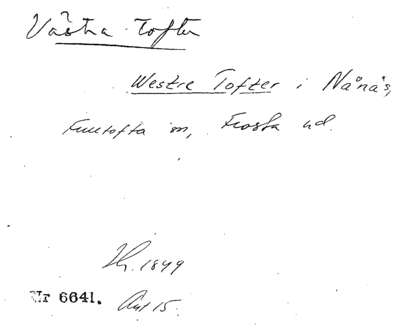 Västra Tofter
Westre Tofter i Nånås,
Fulltofta sn, Frosta hd.
1849
Nr 6641. Akt 15.